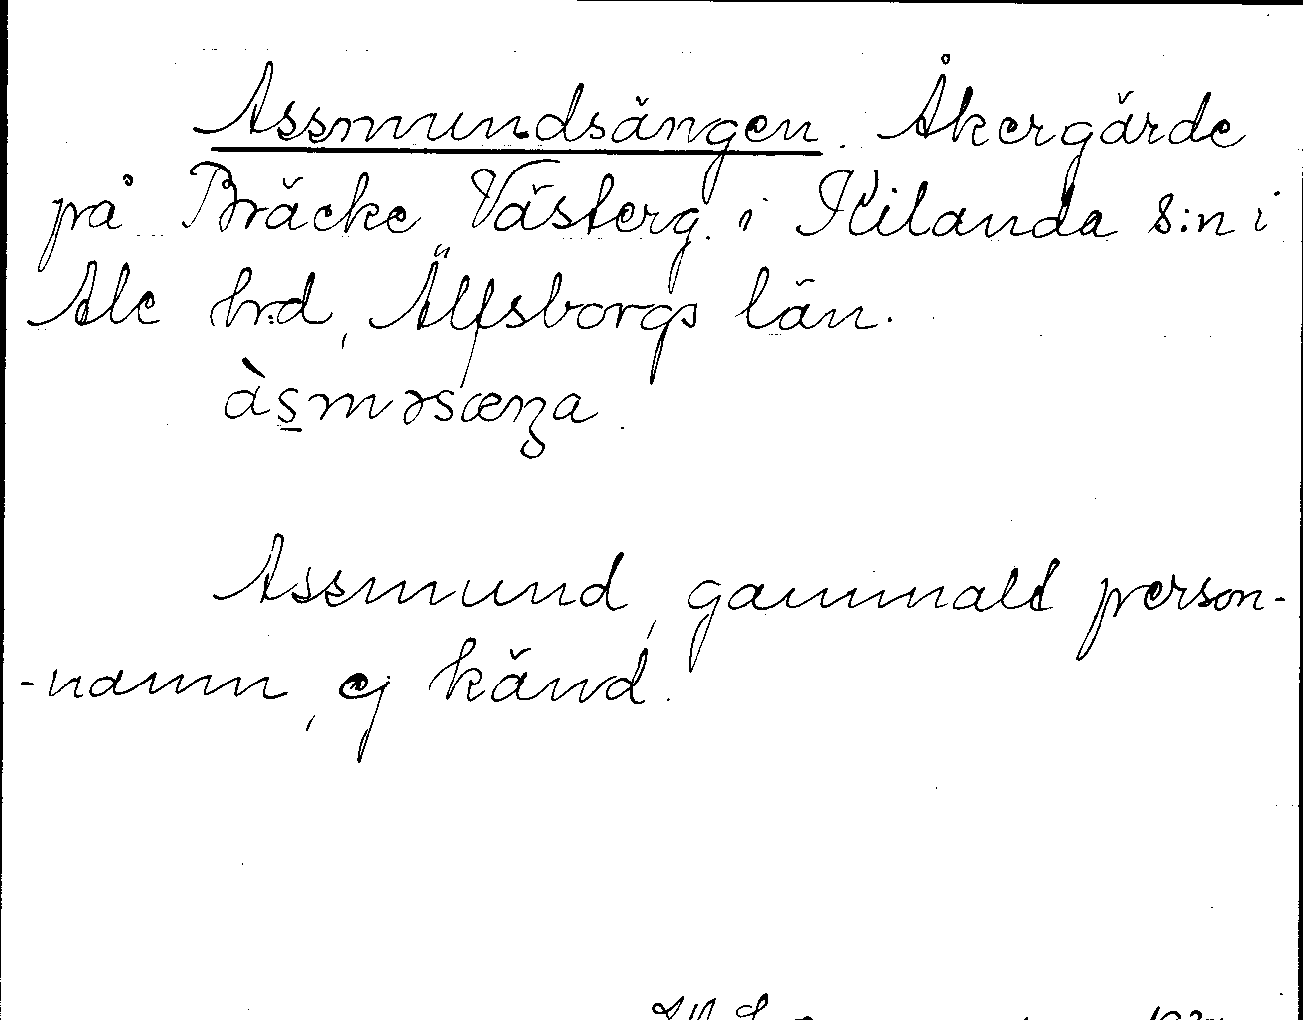 Assmundsängen. Åkergärde
på Bräcke Västerg. i Kilanda s:n i
Ale hd, Älfsborgs län.
às̲məsæŋa.
Assmund, gammalt person-
-namn, ej känd.